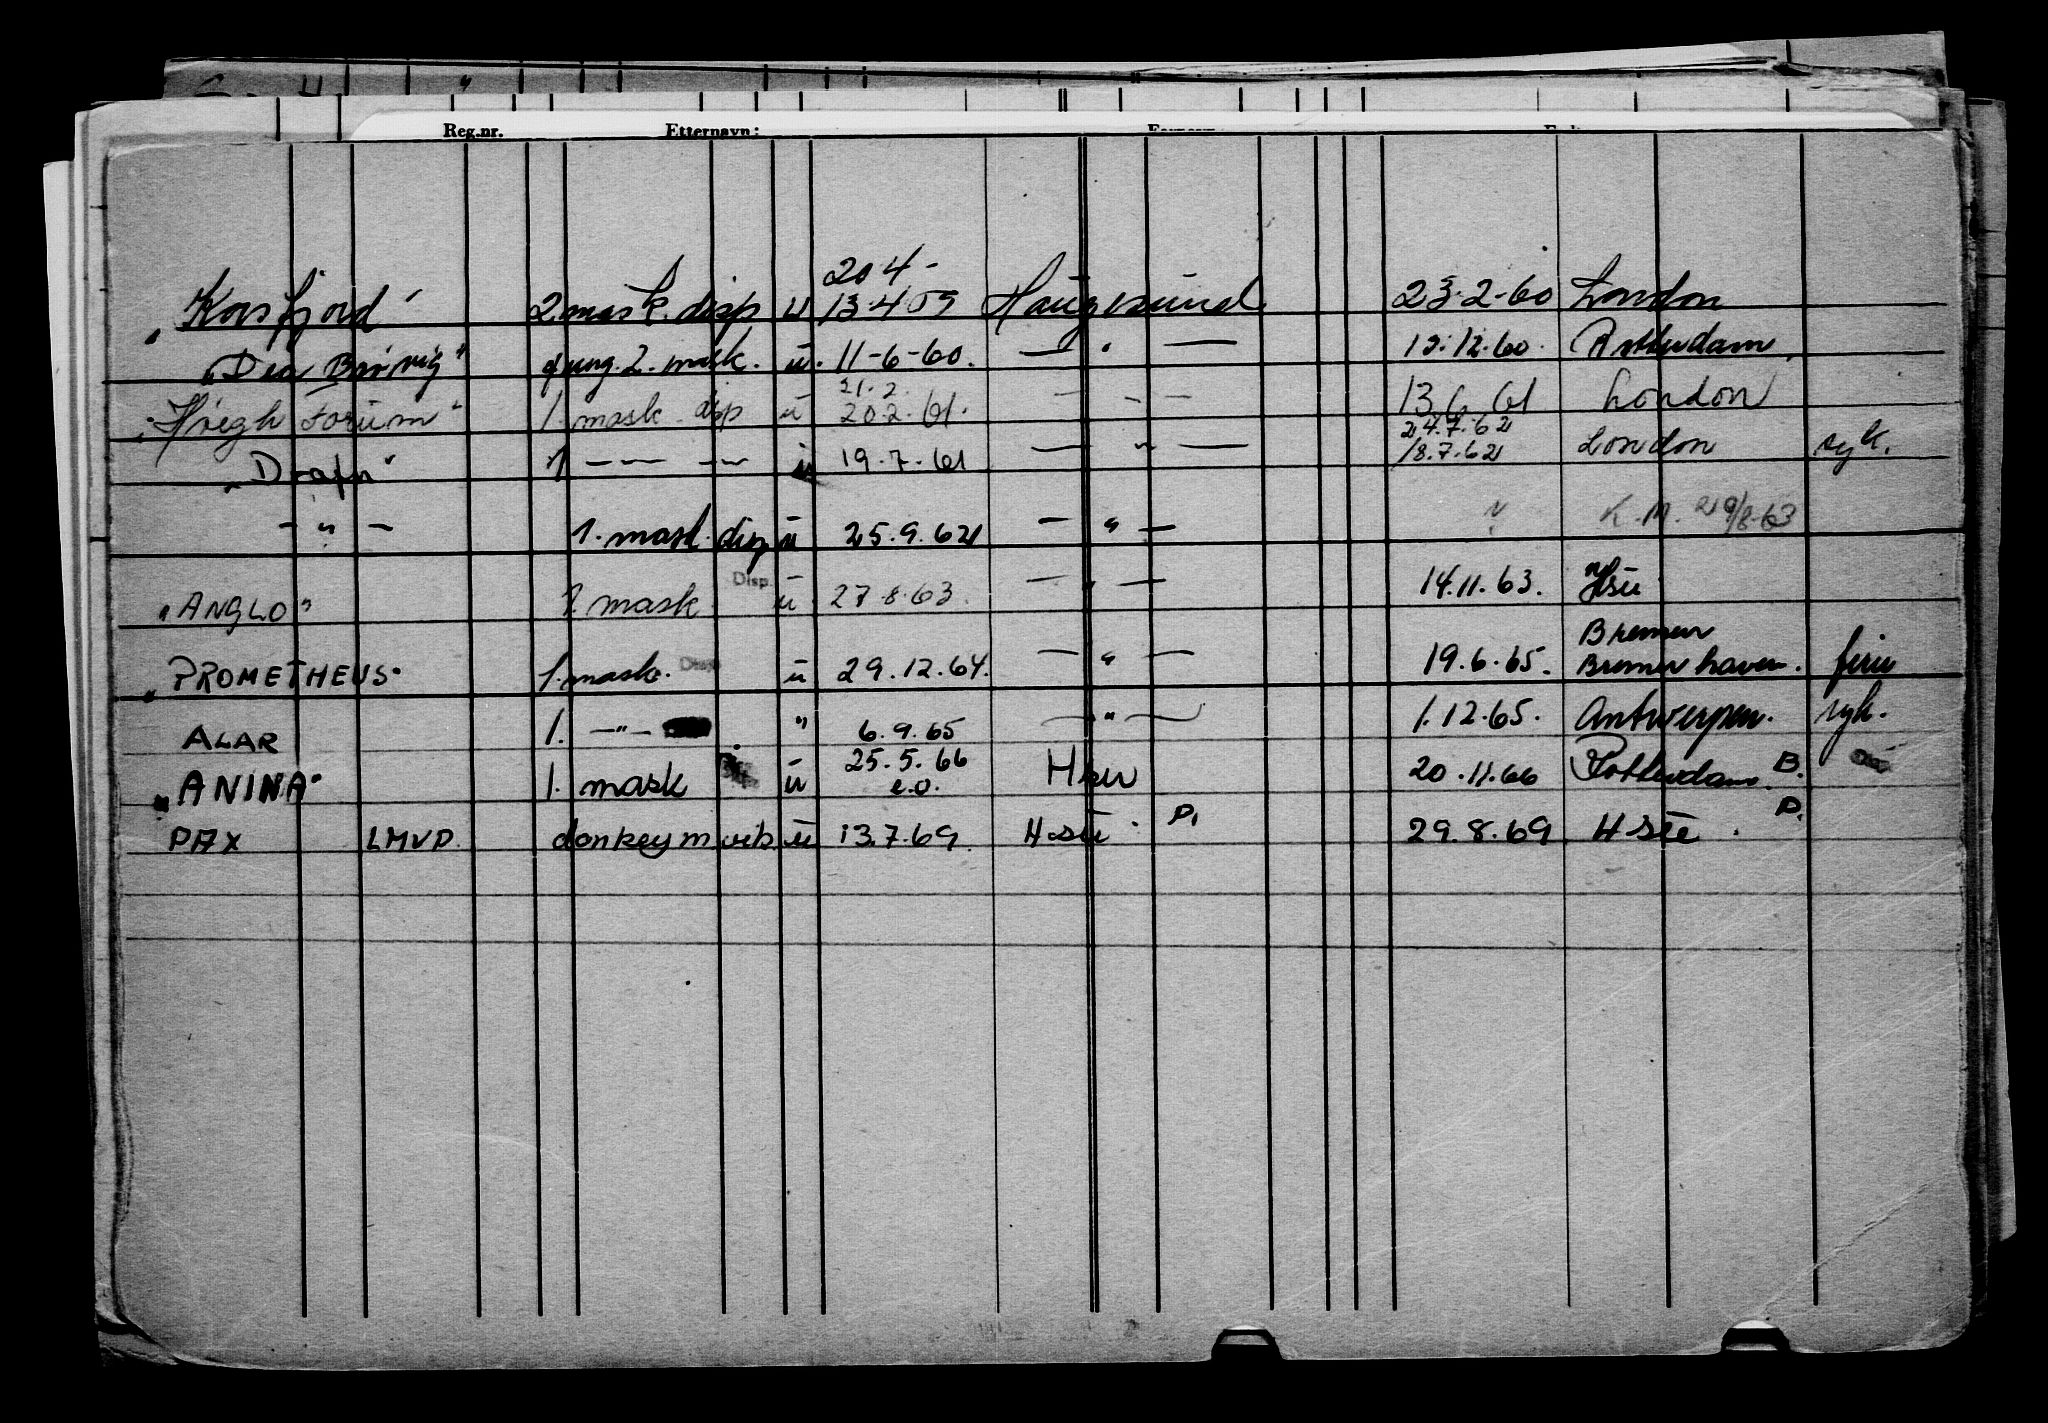 Reg.nr. Etternavn:
20 4 -
"Korsfjord" 2. mask. disp u 13.4.59 Haugesund 23.2-60 London
"Dea Brøvig" fung. 2. mask. u. 11-6-60. — " — 12.12.60. Rotterdam
21.2.
"Høegh Forum" 1. mask disp u 20.2.61. — " — 13.6.61 London
24.7.62
"Drafn" 1 — — — — u 19.7.61 — " — 18.7.62 London syk.
— " — 1. mask. disp u 25.9.62 — " — K.M. 29/8-63
"ANGLO" 1. mask Disp. u 27.8.63. — " — 14.11.63. Hsu
Bremen
"PROMETHEUS" 1. mask. Disp u 29.12.64. — " — 19.6.65. Bremerhaven. ferie
ALAR 1. —"— " 6.9.65 — " — 1.12.65. Antwerpen. syk.
25.5.66
"ANINA" 1. mask u e.o. Hsu 20.11.66 Rotterdam. B.
PAX LMVP donkeym vik u 13.7.69. Hsu. P. 29.8.69 Hsu. P.